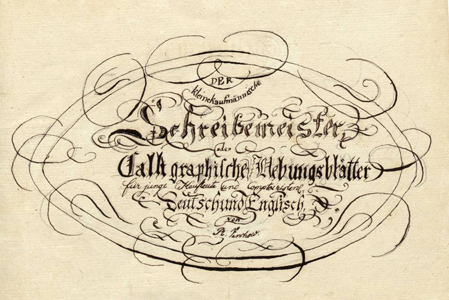 DER
kleine kaufmännische
Schreibemeister,
oder
Calligraphische Uebungsblätter
für junge Kaufleute und Comptoiristen
Deutsch und Englisch
von